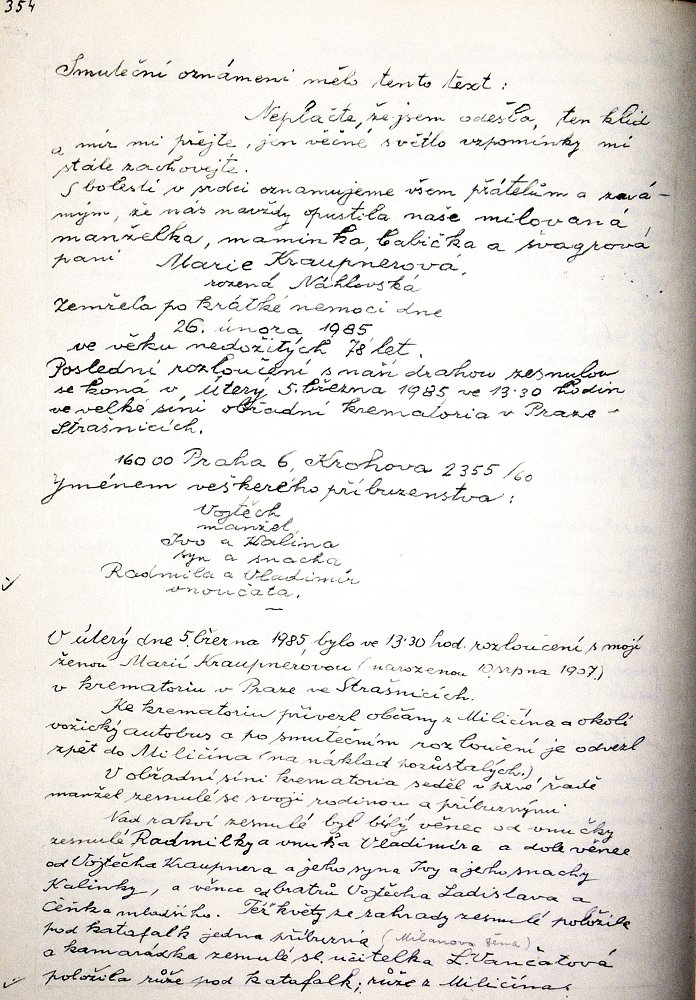 354
Smuteční oznámení mělo tento text:
Neplačte, že jsem odešla, ten klid
a mír mi přejte, jen věčné světlo vzpomínky mi
stále zachovejte.
S bolestí v srdci oznamujeme všem přátelům a zná-
mým, že nás navždy opustila naše milovaná
manželka, maminka, babička a švagrová
paní Marie Kraupnerová,
rozená Náhlovská
Zemřela po krátké nemoci dne
26. února 1985
ve věku nedožitých 78 let.
Poslední rozloučení s naší drahou zesnulou
se koná v úterý 5. března 1985 ve 13.30 hodin
ve velké síni obřadní krematoria v Praze-
Strašnicích.
160 00 Praha 6, Krohova 2355/60
Jménem veškerého příbuzenstva:
Vojtěch
manžel
Ivo a Kalina
syn a snacha
Radmila a Vladimír
vnoučata.
V úterý dne 5. března 1985, bylo ve 13.30 hod. rozloučení s mojí
ženou Marií Kraupnerovou (narozenou 10. srpna 1907)
v krematoriu v Praze ve Strašnicích.
Ke krematoriu přivezl občany z Miličína a okolí
vožický autobus a po smutečním rozloučení je odvezl
zpět do Miličína (na náklad pozůstalých.)
V obřadní síni krematoria seděl v prvé řadě
manžel zemulé se svojí rodinou a příbuznými
Nad rakví zesnulé byl bílý věnec od vnučky
zesnulé Radmilky a vnuka Vladimíra a dole věnce
od Vojtěcha Kraupnera a jeho syna Ivy a jeho snachy
Kalinky, a věnce od bratrů Vojtěcha Ladislava a
Čeňka mladšího. Též květy ze zahrady zesnulé položila
pod katafalk jedna příbuzná (Milanova žena)
a kamarádka zesnulé sl. učitelka L. Vančatová
položila růže pod katafalk; růže z Miličína